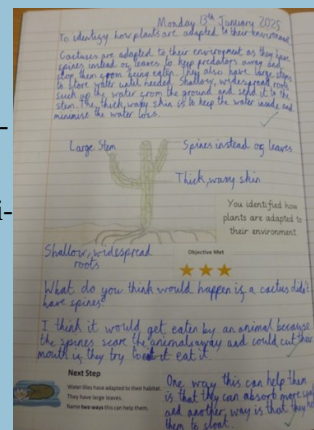 Monday 13th January 2025
To identify how plants are adapted to their environment
Cactuses are adapted to their environment as they have
spines instead of leaves to keep predators away and
stop them from being eaten. They also have large stems
to store water until needed. Shallow, widespread roots
suck up the water from the ground and send it to the
stem. The thick, waxy skin is to keep the water inside and
minimise the water loss.
Large Stem
Spines instead of leaves
Thick, waxy skin
You identified how
plants are adapted to
their environment.
Shallow, widespread
roots
Objective Met
What do you think would happen if a cactus didn't
have spines?
I think it would get eaten by an animal because
the spines scare the animal away and could cut their
mouth if they try to eat it.
Next Step
Water lilies have adapted to their habitat.
They have large leaves.
Name two ways this can help them.
One way this can help them
is that they can absorb more
and another way is that they
them to float.